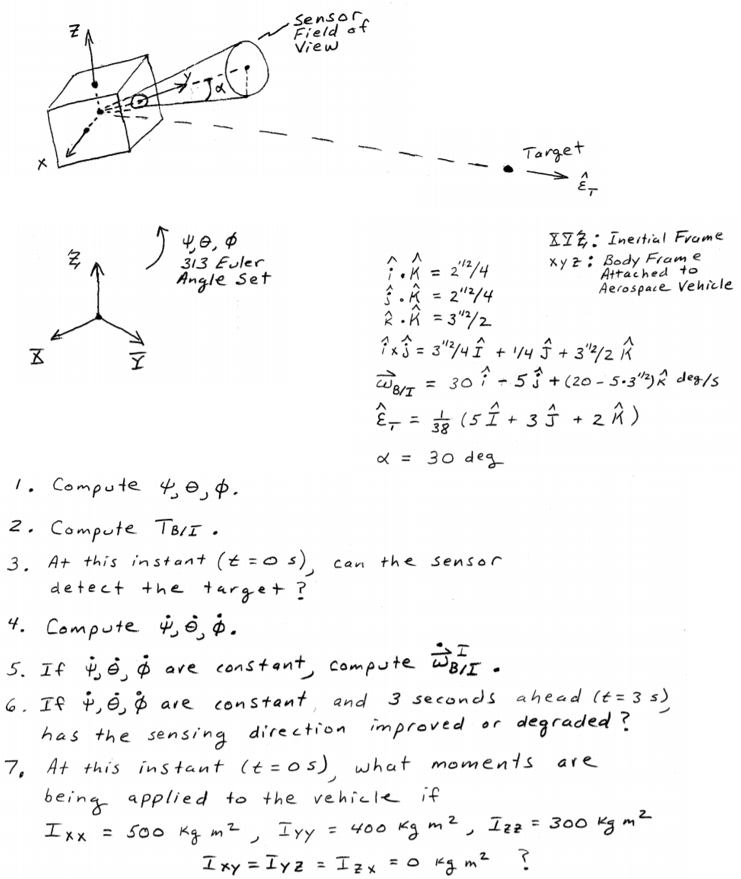 Sensor
Field of
View
Z
y
α
x
Target
ε̂_T
ψ, θ, φ
313 Euler
Angle Set
Z
X
Y
XYZ: Inertial Frame
xyz: Body Frame
Attached to
Aerospace Vehicle
î·K̂ = 2^{1/2}/4
ĵ·K̂ = 2^{1/2}/4
k̂·K̂ = 3^{1/2}/2
î×ĵ = 3^{1/2}/4 Î + 1/4 Ĵ + 3^{1/2}/2 K̂
ω⃗_{B/I} = 30 î - 5 ĵ + (20 - 5·3^{1/2}) k̂ deg/s
ε̂_T = 1/38 (5 Î + 3 Ĵ + 2 K̂)
α = 30 deg
1. Compute ψ, θ, φ.
2. Compute T_{B/I}.
3. At this instant (t=0 s), can the sensor
detect the target?
4. Compute ψ̇, θ̇, φ̇.
5. If ψ̇, θ̇, φ̇ are constant, compute ω⃗̇_{B/I}^I.
6. If ψ̇, θ̇, φ̇ are constant, and 3 seconds ahead (t=3 s),
has the sensing direction improved or degraded?
7. At this instant (t=0 s), what moments are
being applied to the vehicle if
I_{xx} = 500 kg m², I_{yy} = 400 kg m², I_{zz} = 300 kg m²
I_{xy} = I_{yz} = I_{zx} = 0 kg m² ?